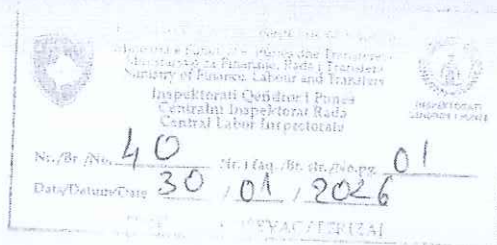 Ministria e Financave, Punës dhe Transfereve
Ministarstvo za Finansije, Rada i Transfera
Ministry of Finance, Labour and Transfers
Inspektorati Qendror i Punës
Centralni Inspektorat Rada
Central Labor Inspectorate
Nr./Br./No. 40 Nr. i faq./Br. str./No.pg. 01
Data/Datum/Date 30 / 01 / 2026